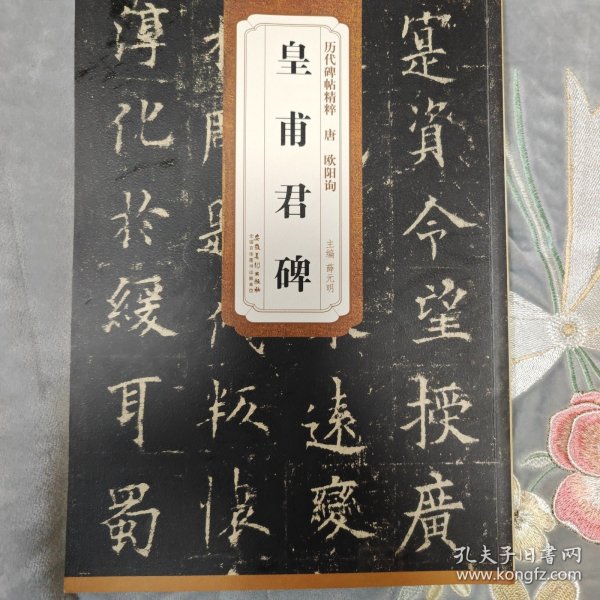 寔資令望授廣
遠變
叛懷
薄化於緩耳蜀
历代碑帖精粹 唐 欧阳询
皇甫君碑
主编 薛元明
安徽美术出版社
孔夫子旧书网
www.kongfz.com